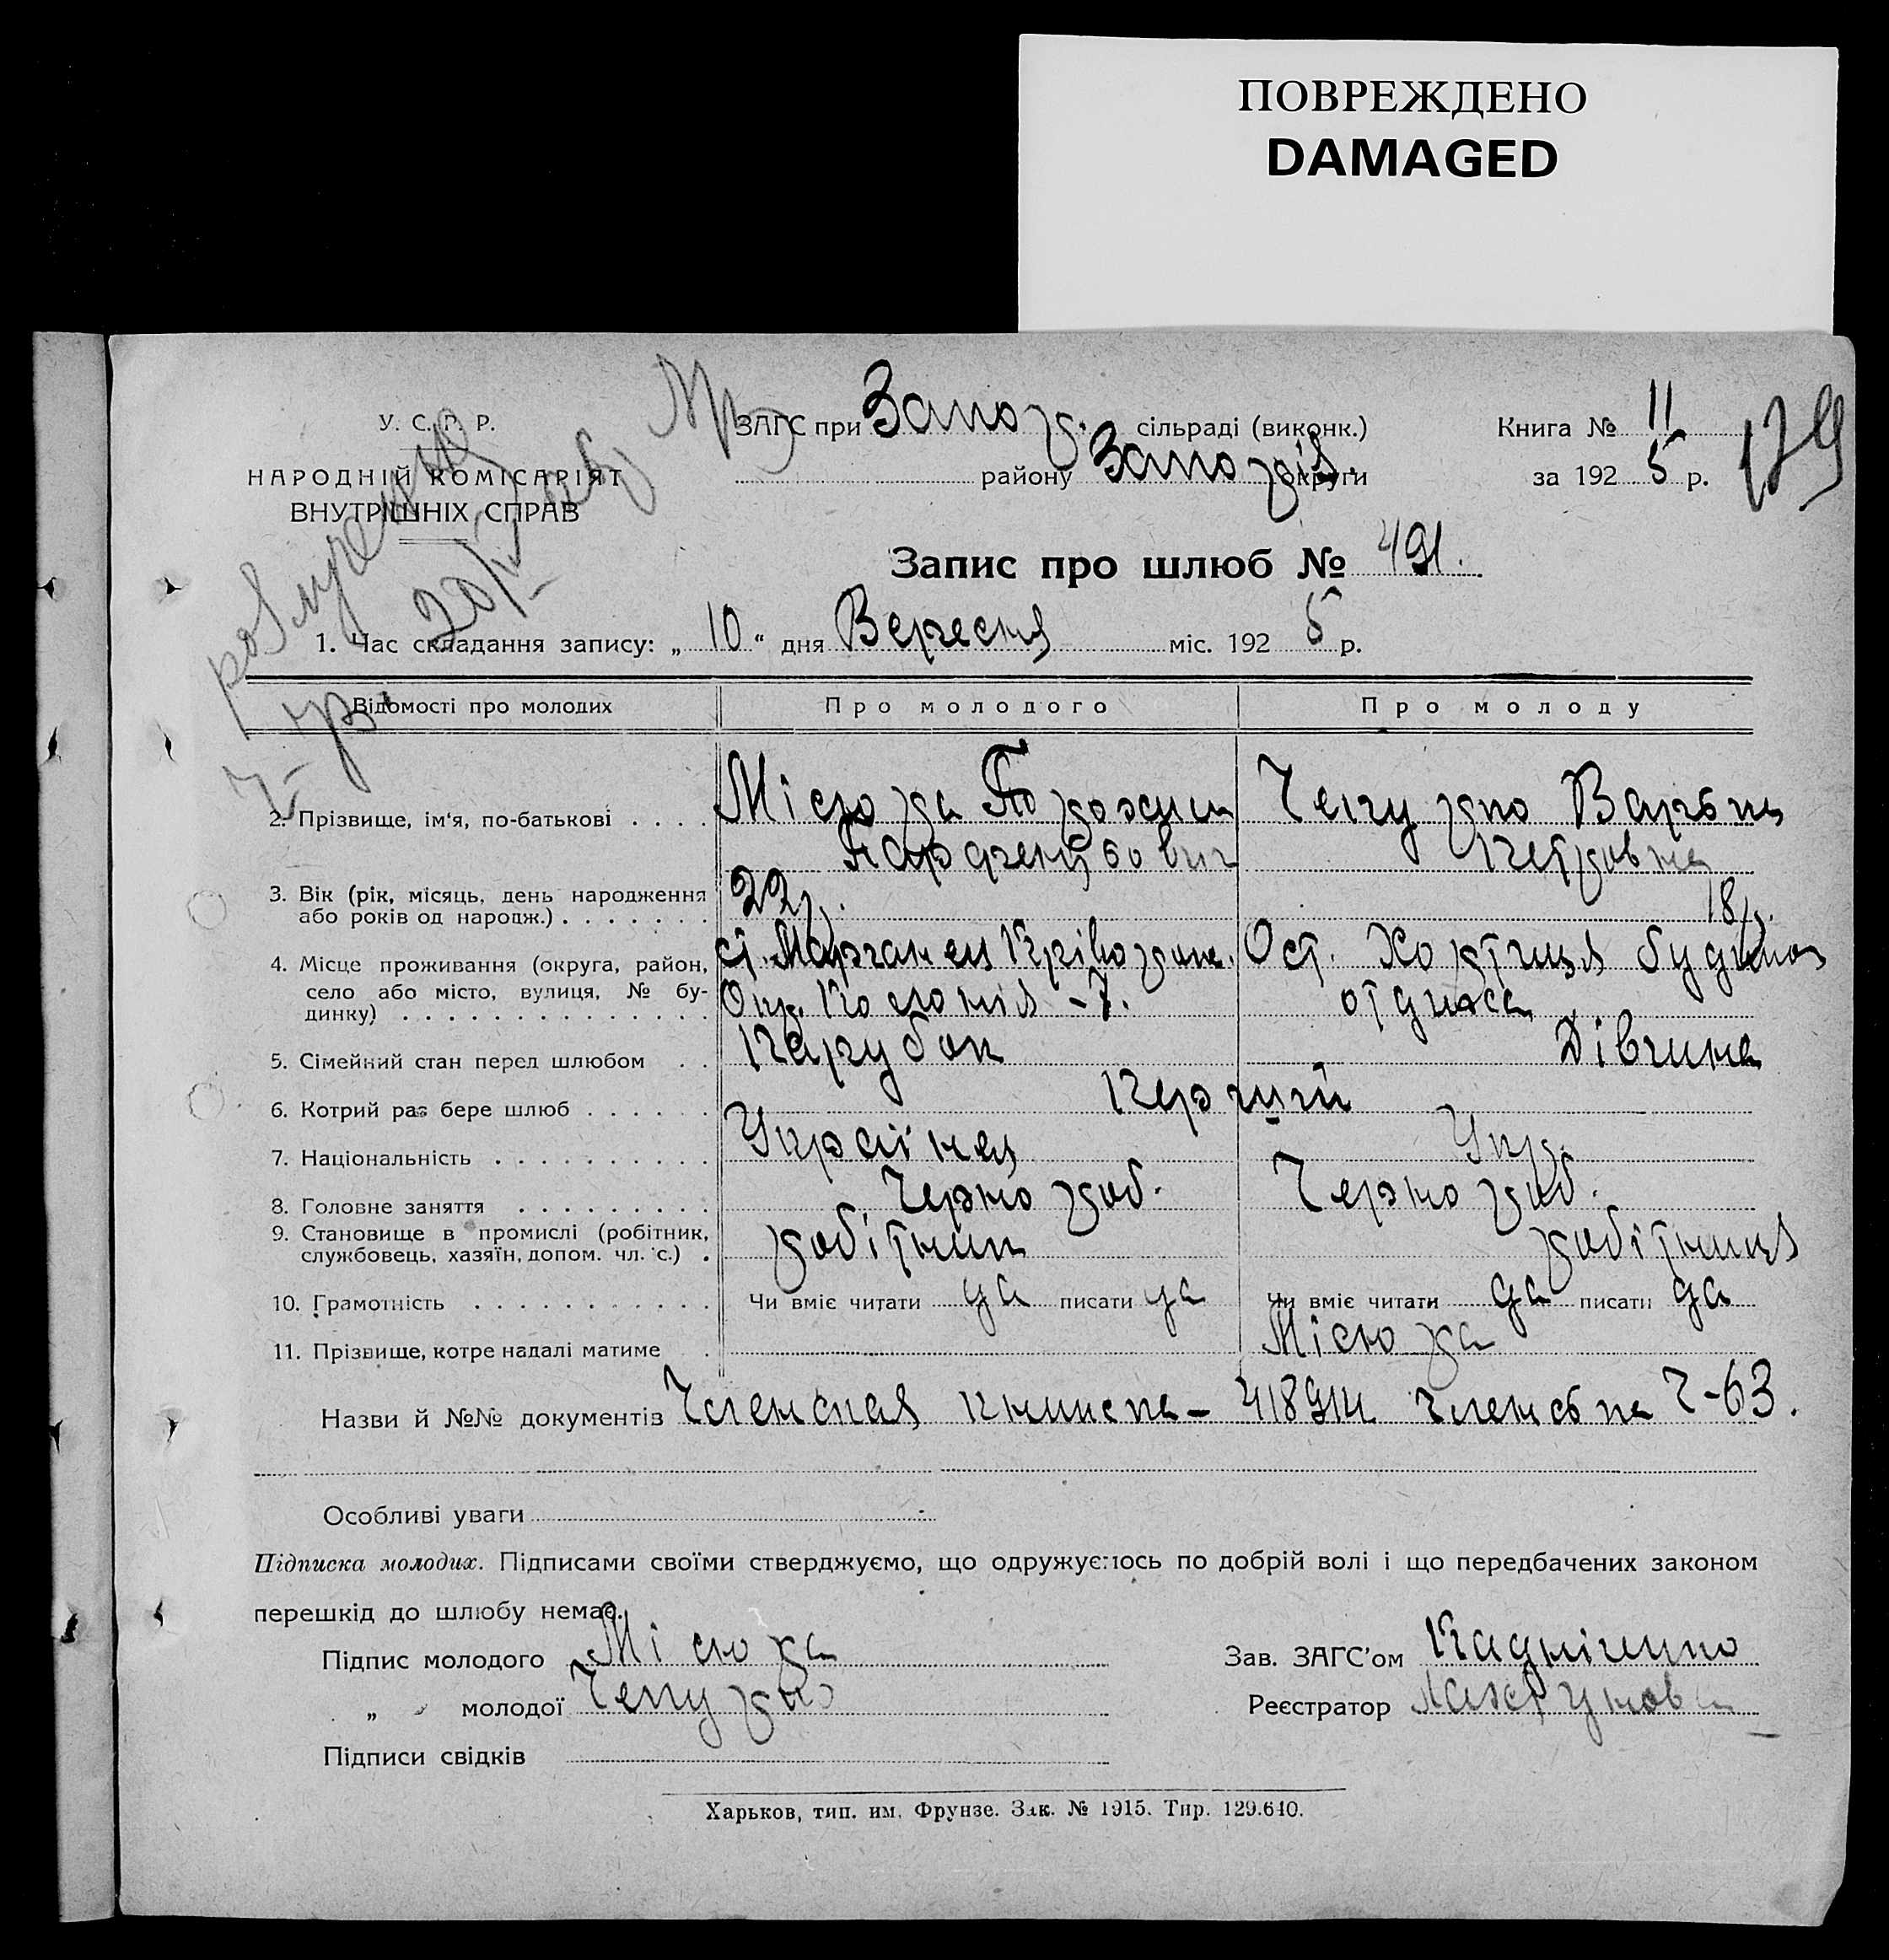 ПОВРЕЖДЕНО
DAMAGED
У. С. Р. Р.
НАРОДНІЙ КОМІСАРІЯТ
ВНУТРІШНІХ СПРАВ
ЗАГС при Запор. сільраді (виконк.)
району Запоріз. округи
Книга № 11
за 1925 р.
179
Запис про шлюб № 491.
1. Час складання запису: „10“ дня Вересня міс. 1925 р.
Відомості про молодих Про молодого Про молоду
2. Прізвище, ім'я, по-батькові Місюра Чепурко Варвара
Парфентьович Петровна
3. Вік (рік, місяць, день народження 22р. 18р.
або років од народж.)
4. Місце проживання (округа, район, ст. Марганец Криворож. Ост. Хортиця будинок
село або місто, вулиця, № бу- Окр. Колонія -7. отдиха
динку)
5. Сімейний стан перед шлюбом Парубок Дівчина
6. Котрий раз бере шлюб Перший
7. Національність Українец Укр.
8. Головне заняття Чернороб. Чернороб.
9. Становище в промислі (робітник, робітник робітниця
службовець, хазяїн, допом. чл. с.)
10. Грамотність Чи вміє читати да писати да Чи вміє читати да писати да
11. Прізвище, котре надалі матиме Місюра
Назви й №№ документів Членская книжка - членська Ч-63.
Особливі уваги
Підписка молодих. Підписами своїми стверджуємо, що одружуємось по добрій волі і що передбачених законом
перешкід до шлюбу немає.
Підпис молодого Місюра Зав. ЗАГС'ом
„ молодої Чепурко Реєстратор
Підписи свідків
Харьков, тип. им. Фрунзе. Зак. № 1915. Тир. 129.640.